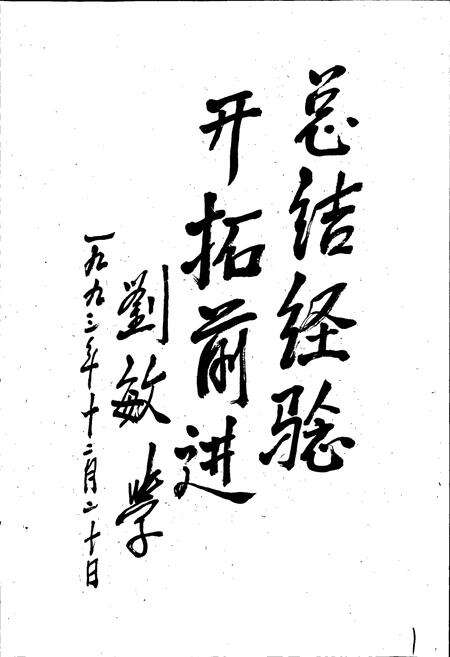 总结经验
开拓前进
劉敏学
一九九三年十二月二十日